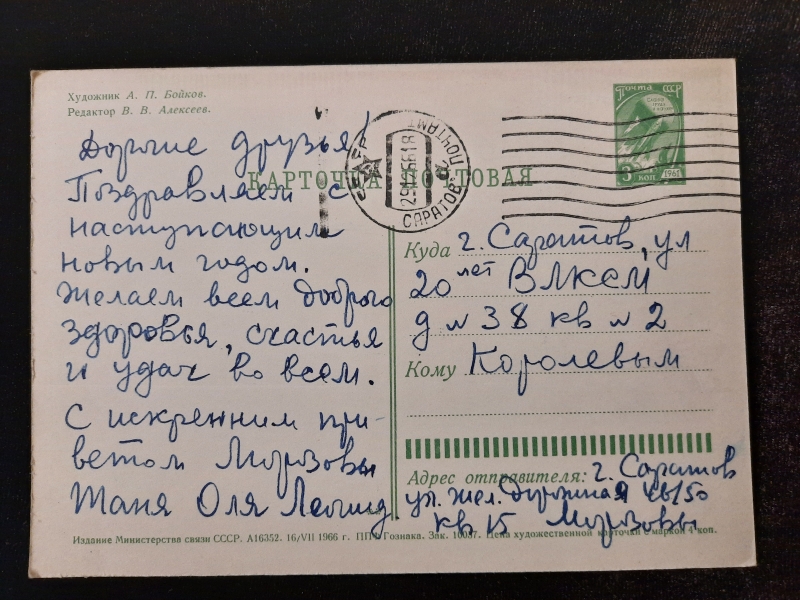 Художник А. П. Бойков.
Редактор В. В. Алексеев.
Дорогие друзья!
Поздравляем с
наступающим
новым годом.
Желаем всем доброго
здоровья, счастья
и удач во всем.
С искренним при-
ветом Морозовы
Таня Оля Леонид
КАРТОЧКА ПОЧТОВАЯ
СССР
САРАТОВ ПОЧТАМТ
Почта СССР
3 коп 1961
Куда г. Саратов, ул
20 лет ВЛКСМ
д № 38 кв № 2
Кому Королевым
Адрес отправителя: г. Саратов
ул. Жел. Дорожная
кв 15 Морозовы
Издание Министерства связи СССР. А16352. 16/VII 1966 г. ППФ Гознака. Зак. 10037. Цена художественной карточки с маркой 4 коп.